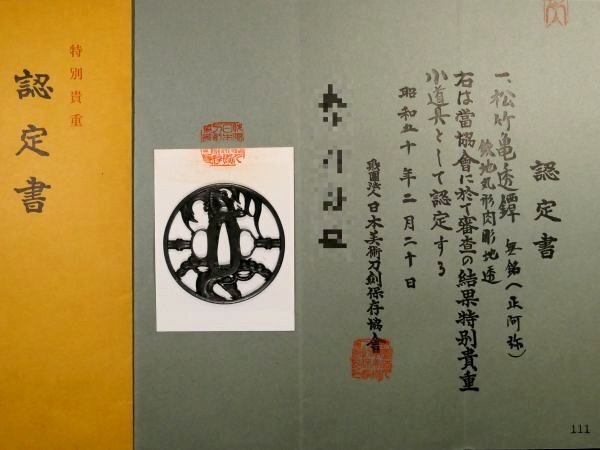 認定書
一、松竹亀透鐔 無銘(正阿弥)
鉄地丸形肉彫地透
右は當協會に於て審査の結果特別貴重
小道具として認定する
昭和五十年二月二十日
財團法人日本美術刀剣保存協會
特別貴重
認定書
111